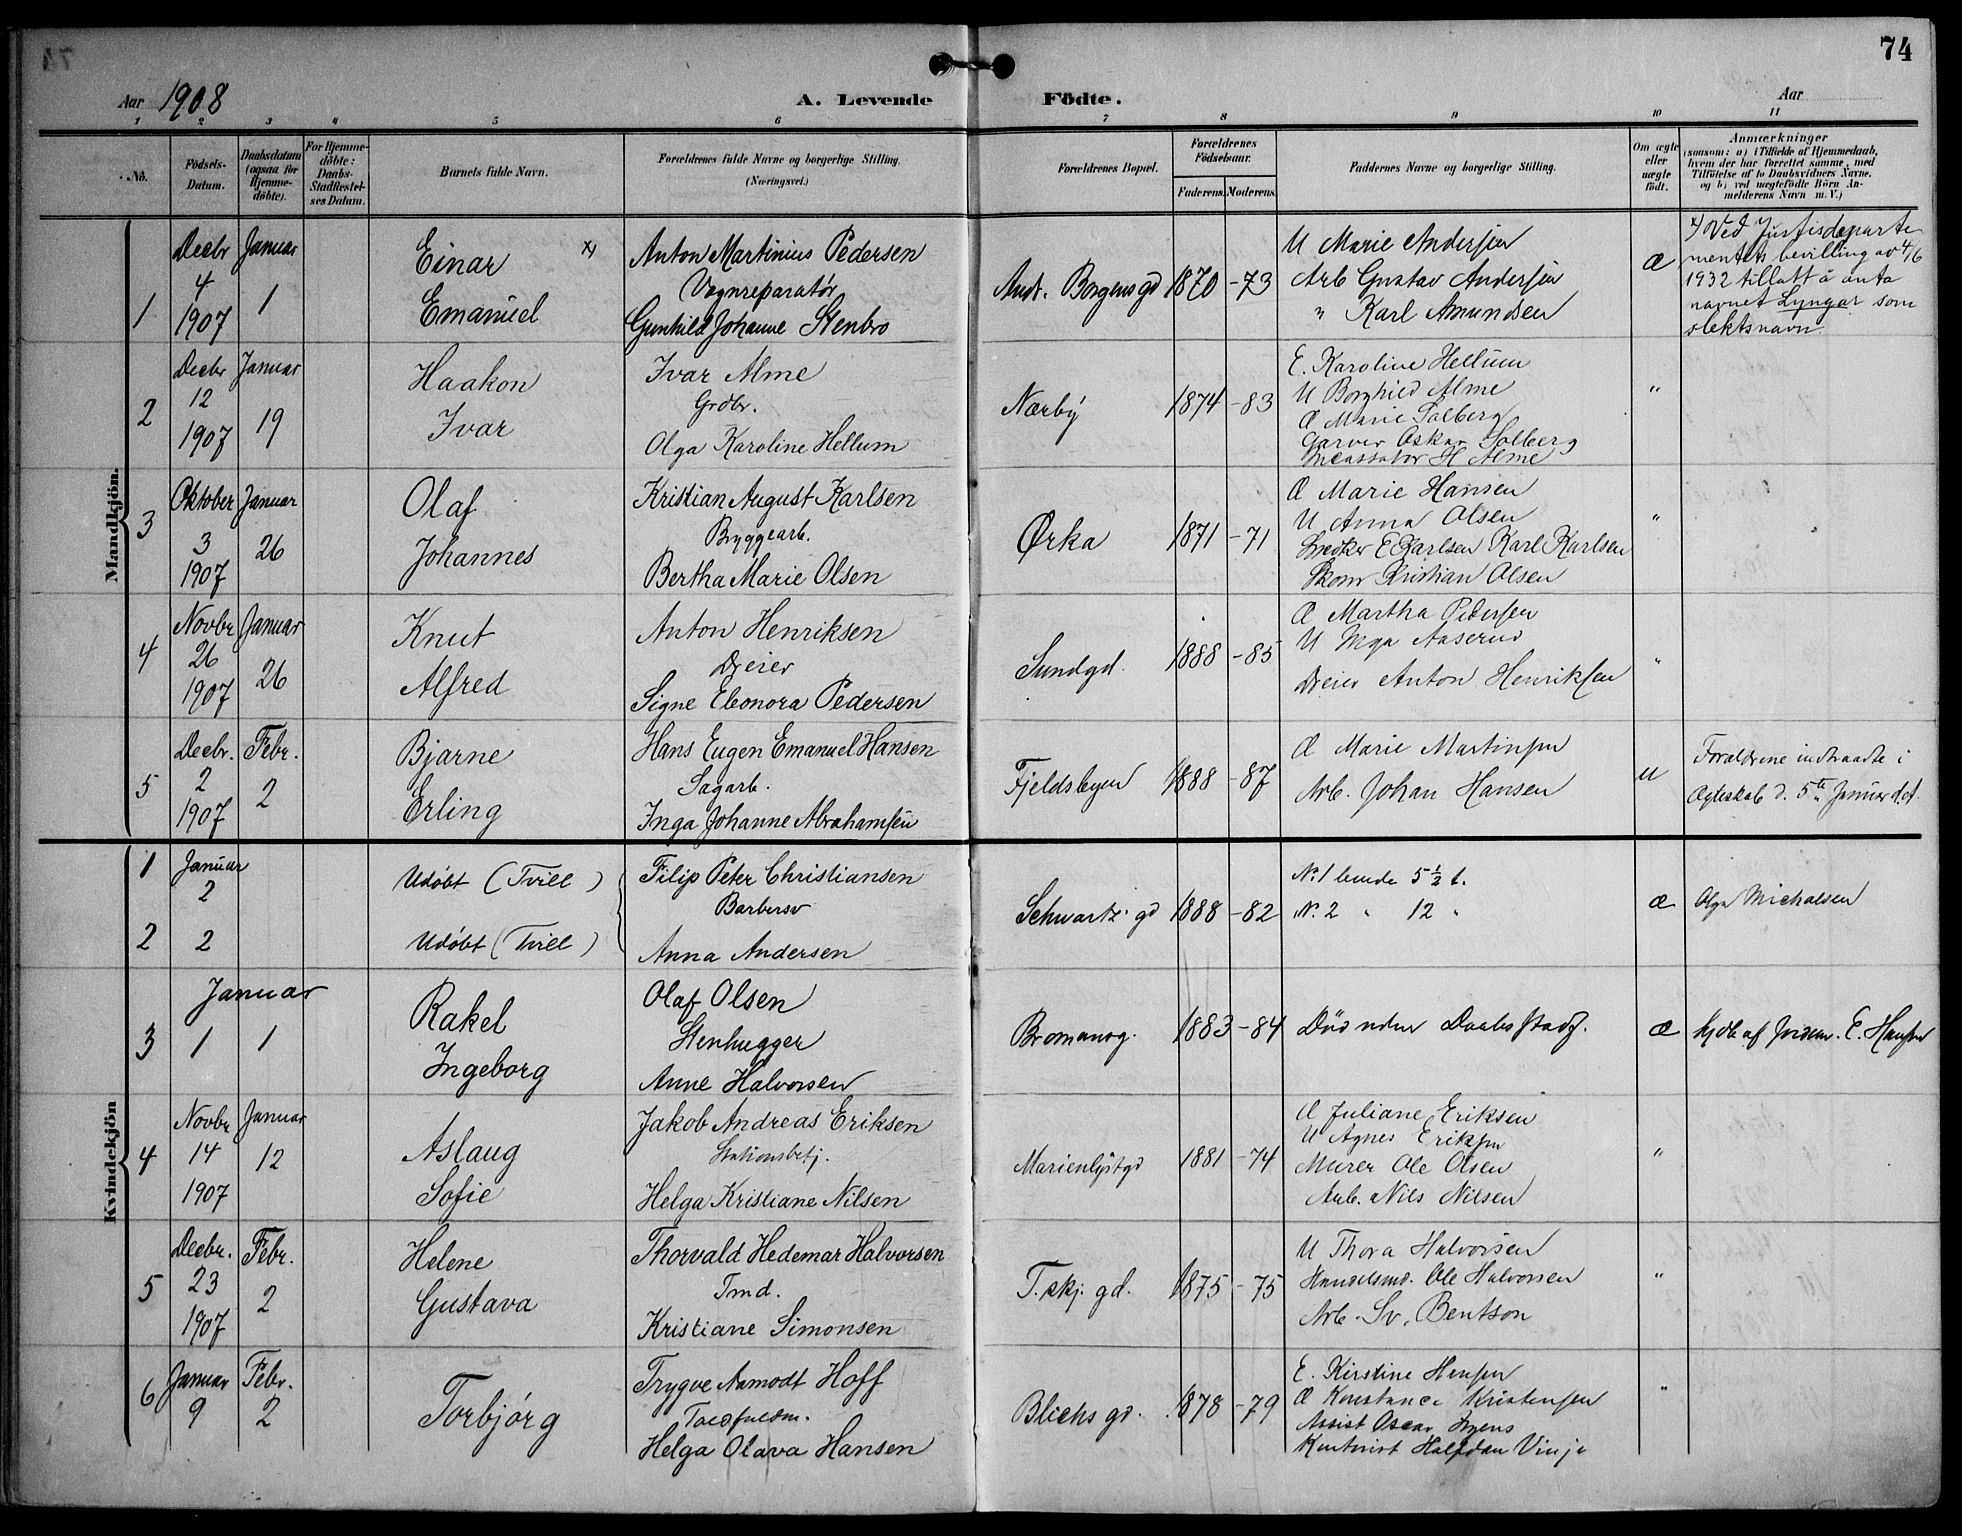 74
Aar 1908
A. Levende Födte.
Aar
1 2 3 4 5 6 7 8 9 10 11
No.
Födsels-Datum.
Daabsdatum (ogsaa for Hjemme-döbte).
For Hjemme-döbte: Daabs-Stadfæstel-ses Datum.
Barnets fulde Navn.
Forældrenes fulde Navne og borgerlige Stilling. (Næringsvei.)
Forældrenes Bopæl.
Forældrenes Födselsaar.
Faderens. Moderens.
Faddernes Navne og borgerlige Stilling.
Om ægte eller uægte födt.
Anmærkninger
(saasom: a) i Tilfælde af Hjemmedaab, hvem der har forrettet samme, med Tilföielse af to Daabsvidners Navne, og b) ved uægtefödte Börn An-melderens Navn m. V.)
Mandkjön.
1
Decbr 4 1907
Januar 1
Einar x)
Emanuel
Anton Martinius Pedersen
Vognreparatør
Gunhild Johanne Stenbro
And. Borgensgd
1870 -73
U Marie Andersen
Arb Gustav Andersen
" Karl Amundsen
Æ
x) Ved Justisdeparte
mentets bevilling av 4/6
1932 tillatt å anta
navnet Lyngar som
slektsnavn.
2
Decbr 12 1907
Januar 19
Haakon
Ivar
Ivar Alme
Grdbr.
Olga Karoline Hellum
Nærby
1874 -83
E. Karoline Hellum
U Borghild Alme
Æ Marie Solberg
Garver Oskar Solberg
Incassator H Alme
"
3
Oktober 3 1907
Januar 26
Olaf
Johannes
Kristian August Karlsen
Bryggearb.
Bertha Marie Olsen
Ørka
1871 -71
Æ Marie Hansen
U Anna Olsen
Snedker E Karlsen Karl Karlsen
Skom Kristian Olsen
"
4
Novbr 26 1907
Januar 26
Knut
Alfred
Anton Henriksen
Dreier
Signe Eleonora Pedersen
Sundgd.
1888 -85
Æ Martha Pedersen
U Inga Aaserud
Dreier Anton Henriksen
"
5
Decbr. 2 1907
Febr. 2
Bjarne
Erling
Hans Eugen Emanuel Hansen
Sagarb.
Inga Johanne Abrahamsen
Fjeldsbyen
1888 -87
Æ Marie Martinsen
Arb. Johan Hansen
U
Forældrene indtraadte i
Ægteskab d. 5te Januar d.A.
Kvindekjön
1
Januar 2
Udøbt (Tvill)
2
2
Udøbt (Tvill)
Filip Peter Christiansen
Barbersv
Anna Andersen
Schwartz gd
1888 -82
No 1 levede 5 1/2 t.
N. 2 " 12 "
Æ
Olga Michalsen
3
Januar
1 1
Rakel
Ingeborg
Olaf Olsen
Stenhugger
Anne Halvorsen
Bromansg.
1883 -84
Død uden Daabsstadf.
Æ
hjdb af Jordm. E. Hansen
4
Novbr 14 1907
Januar 12
Aslaug
Sofie
Jakob Andreas Eriksen
Stationsbetj.
Helga Kristiane Nilsen
Marienlystgd
1881 -74
Æ Juliane Eriksen
U Agnes Eriksen
Murer Ole Olsen
Arb. Nils Nilsen
"
5
Decbr. 23 1907
Febr. 2
Helene
Gustava
Thorvald Hedemar Halvorsen
Tmd.
Kristiane Simonsen
T. skj. gd.
1875 -75
U Thora Halvorsen
Handelsmd. Ole Halvorsen
Arb. Sv. Bentson
"
6
Januar 9
Febr. 2
Torbjørg
Trygve Aamodt Hoff
Toldfuldm.
Helga Olava Hansen
Blichs gd.
1878 -79
E. Kirstine Hansen
Æ Konstance Kristensen
Assist Oscar
Kontorist Halfdan Vinje
"